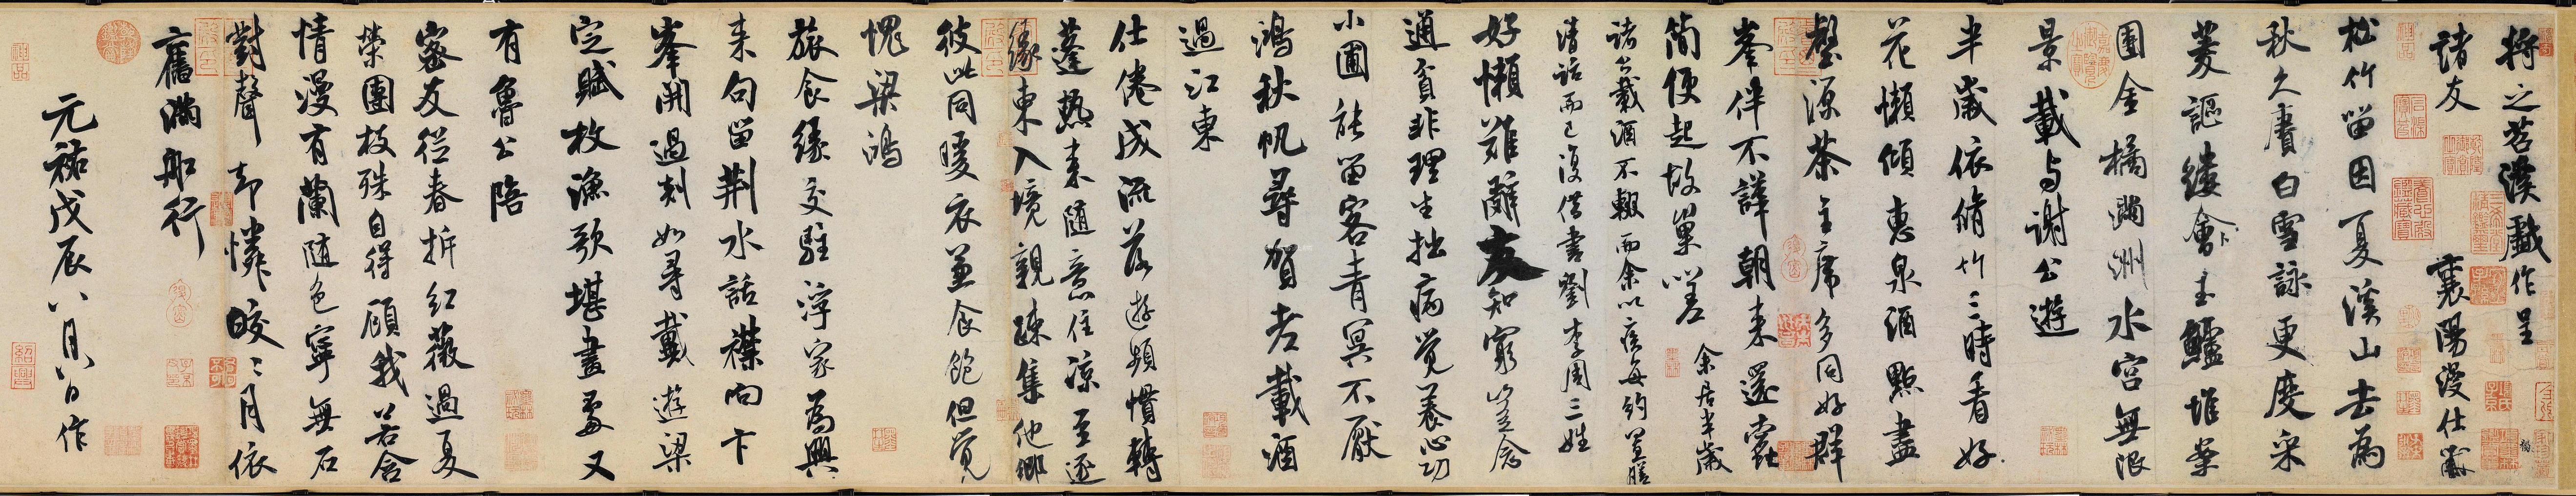 將之苕溪戲作呈
諸友 襄陽漫仕黻
松竹留因夏溪山去為
秋久賡白雪詠更度采
菱謳縷會玉鱸堆案
團金橘滿洲水宮無限
景載與謝公遊
半歲依脩竹三時看好
花懶傾惠泉酒點盡
壑源茶主席多同好群
峯伴不譁朝來還蠹
簡便起故巢嗟 余居半歲
諸公載酒不輟而余以疾每約置膳
清話而已復借書劉李周三姓
好懶難辭友知窮豈念
通貧非理生拙病覺養心功
小圃能留客青冥不厭
鴻秋帆尋賀老載酒
過江東
仕倦成流落遊頻慣轉
蓬熱來隨意住涼至逐
緣東入境親疎集他鄉
彼此同暖衣兼食飽但覺
愧梁鴻
旅食緣交駐浮家為興
來句留荊水話襟向卞
峯開過剡如尋戴遊梁
定賦枚漁歌堪畫處又
有魯公陪
密友從春拆紅薇過夏
榮團枝殊自得顧我若含
情漫有蘭隨色寧無石
對聲却憐皎々月依
舊滿船行
元祐戊辰八月八日作